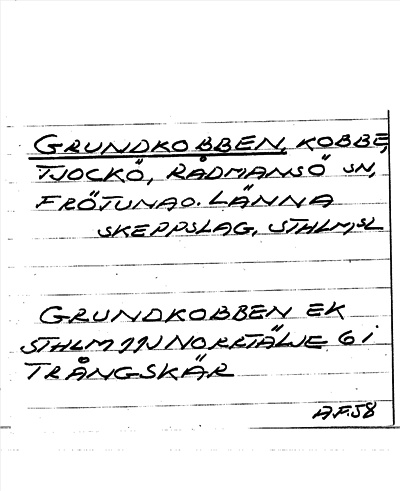 GRUNDKOBBEN, KOBBE,
TJOCKÖ, RÅDMANSÖ SN,
FRÖTUNA O. LÄNNA
SKEPPSLAG, STHLM,SL
GRUNDKOBBEN EK
STHLM NORRTÄLJE 6 i
TRÅNGSKÄR
A.F.58